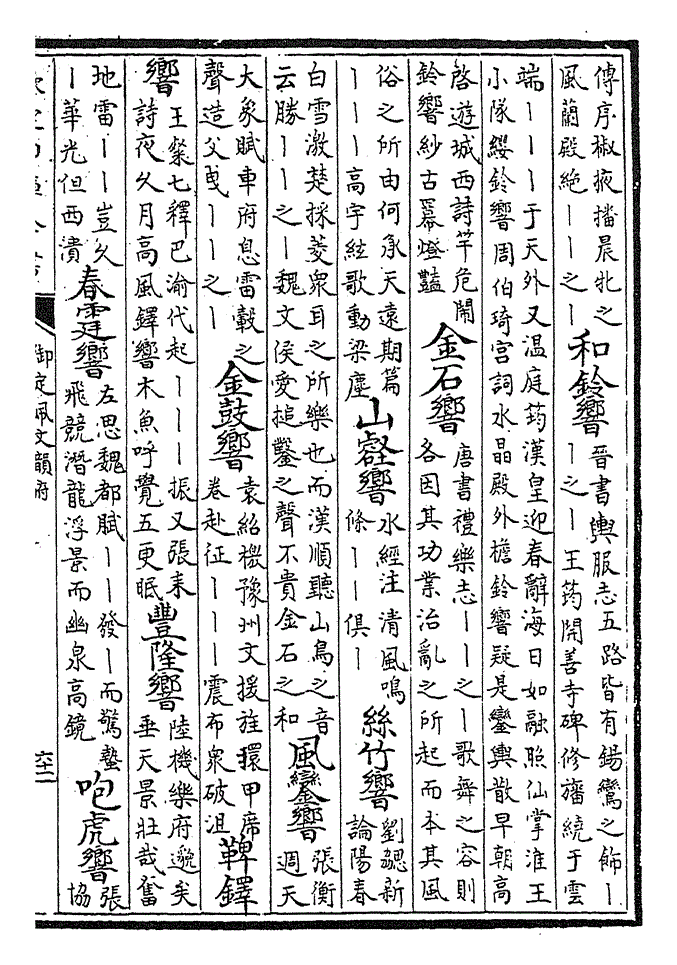 傅序椒掖播晨牝之
風蘭殿絶丨丨之丨
和鈴響
晉書輿服志五路皆有鍚鸞之飾丨
丨之丨王筠開善寺碑修旛繞于雲
端丨丨丨于天外又温庭筠漢皇迎春辭海日如融照仙掌淮王
小隊纓鈴響周伯琦宫詞水晶殿外檐鈴響疑是鑾輿散早朝高
啓遊城西詩竿危閙
鈴響紗古幕燈豔
金石響
唐書禮樂志丨丨之丨歌舞之容則
各因其功業治亂之所起而本其風
俗之所由何承天遠期篇
丨丨丨高宇絃歌動梁塵
山壑響
水經注清風鳴
條丨丨俱丨
絲竹響
劉勰新
論陽春
白雪激楚採菱衆耳之所樂也而漢順聽山鳥之音
云勝丨丨之丨魏文侯愛搥鑿之聲不貴金石之和
風鑾響
張衡
週天
大象賦車府息雷轂之
聲造父曵丨丨之丨
金鼓響
袁紹檄豫州文援旌擐甲席
卷赴征丨丨丨震布衆破沮
鞞鐸
響
王粲七釋巴渝代起丨丨丨振又張耒
詩夜久月高風鐸響木魚呼覺五更眠
豐隆響
陸機樂府邈矣
垂天景壯哉奮
地雷丨丨豈久
丨華光但西潰
春霆響
左思魏都賦丨丨發丨而驚蟄
飛競潛龍浮景而幽泉高鏡
咆虎響
張
協
御定佩文韻府
六十二